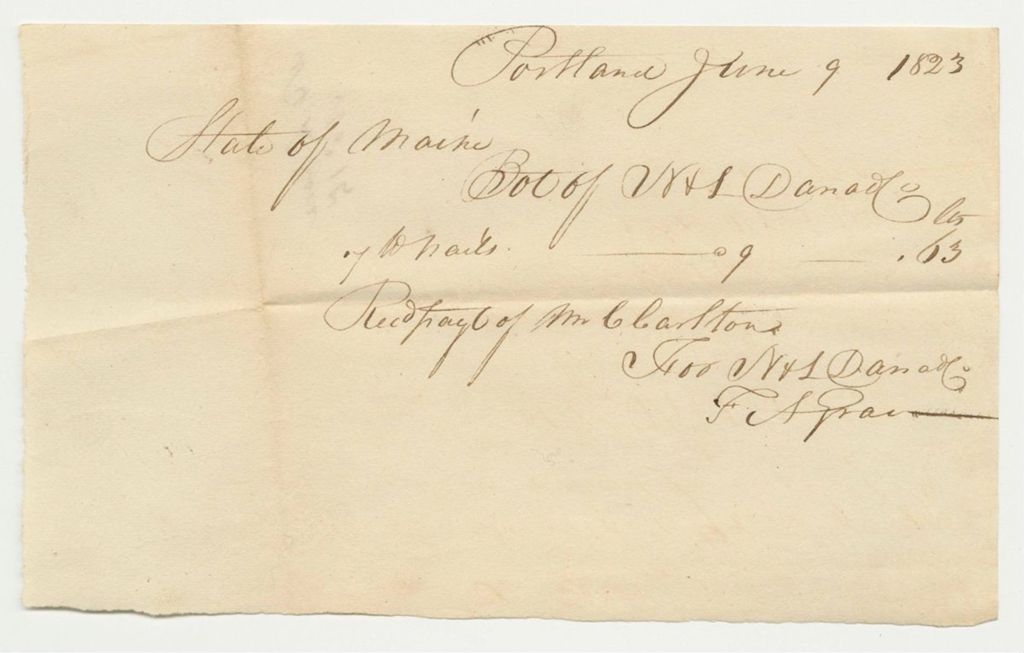 Portland June 9 1823
State of Maine
Bot of N & L Dana & Co
Cts
7 lb Nails — 9 — .63
Recd payt of Mr C Carlton
For N & L Dana & Co
F A